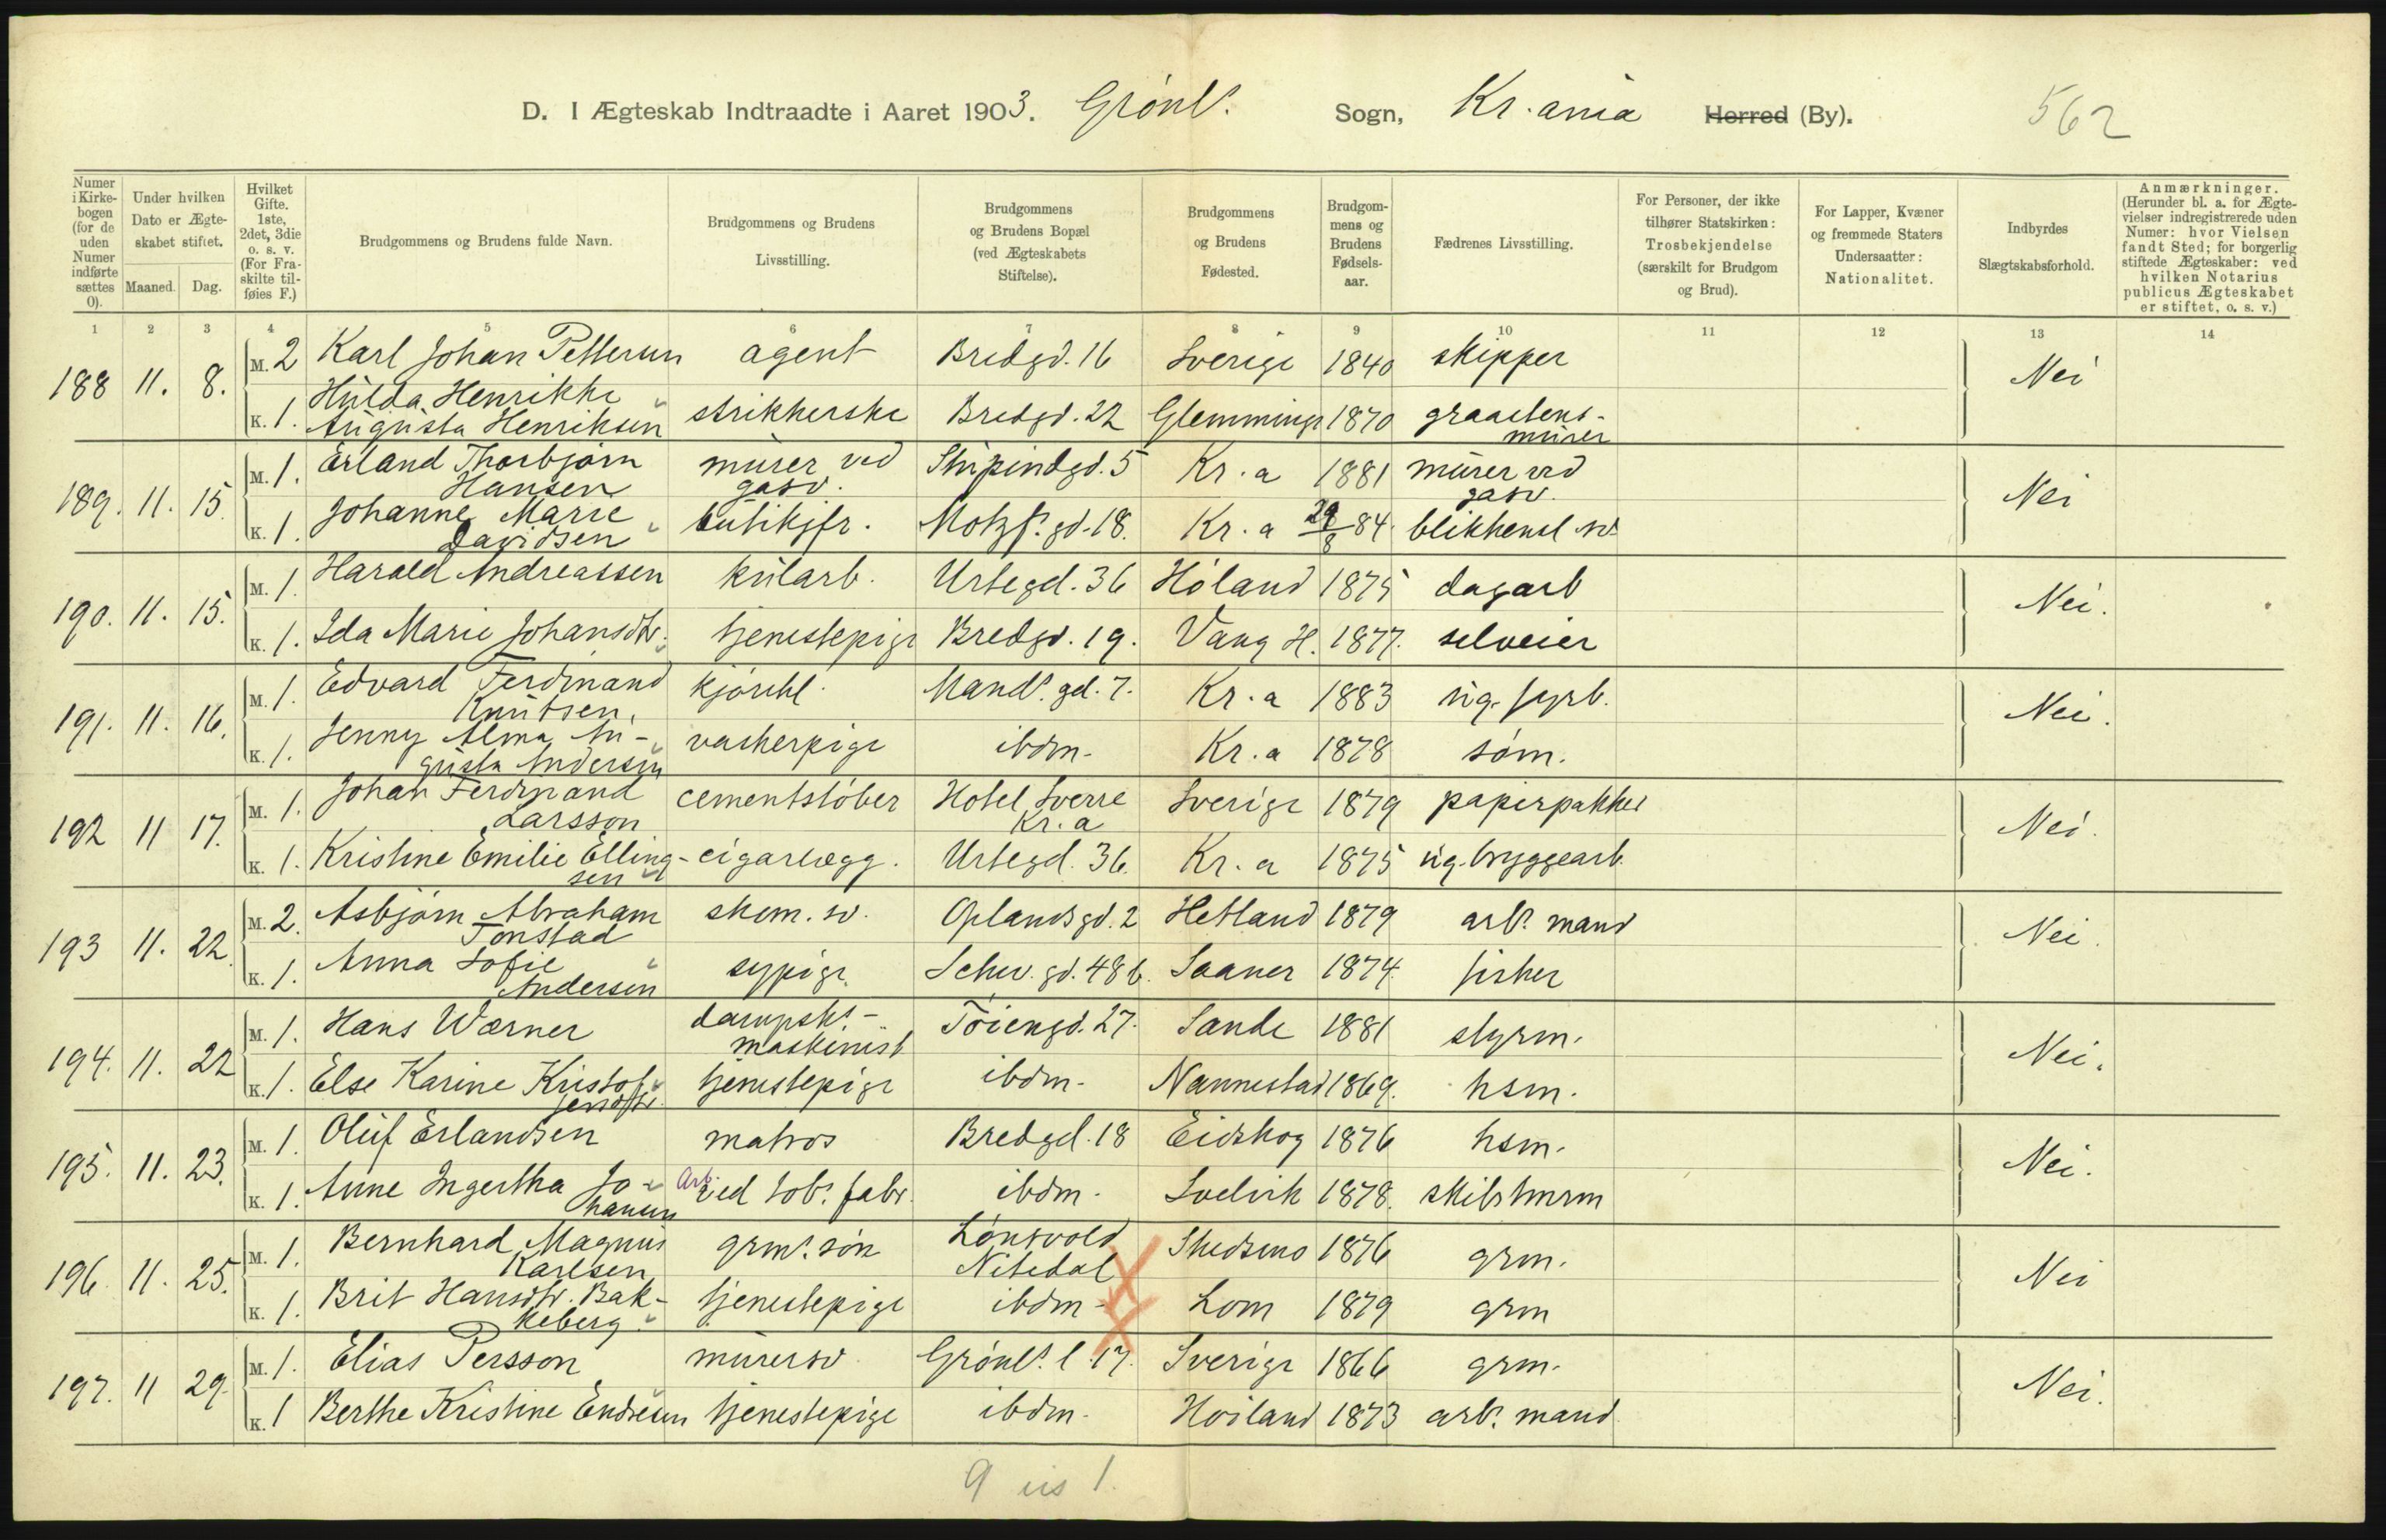 D. I Ægteskab Indtraadte i Aaret 1903. Grönl.s Sogn, Kr.ania Herred (By). 562
Numer i Kirkebogen (for de uden Numer indførte sættes 0).
Under hvilken Dato er Ægteskabet stiftet. Maaned. Dag.
Hvilket Gifte. 1ste, 2det, 3die o. s. v. (For Fraskilte tilføies F.)
Brudgommens og Brudens fulde Navn.
Brudgommens og Brudens Livsstilling.
Brudgommens og Brudens Bopæl (ved Ægteskabets Stiftelse).
Brudgommens og Brudens Fødested.
Brudgommens og Brudens Fødselsaar.
Fædrenes Livsstilling.
For Personer, der ikke tilhører Statskirken: Trosbekjendelse (særskilt for Brudgom og Brud).
For Lapper, Kvæner og fremmede Staters Undersaatter: Nationalitet.
Indbyrdes Slægtskabsforhold.
Anmærkninger. (Herunder bl. a. for Ægtevielser indregistrerede uden Numer: hvor Vielsen fandt Sted; for borgerlig stiftede Ægteskaber: ved hvilken Notarius publicus Ægteskabet er stiftet, o. s. v.)
1 2 3 4 5 6 7 8 9 10 11 12 13 14
188 11. 8. M. 2 Karl Johan Pettersen agent Bredgd. 16 Sverige 1840 skipper Nei
K. 1. Hulda Henrikke Augusta Henriksen strikkerske Bredgd. 22 Glemminge 1870 graastensmurer
189. 11. 15. M. 1. Erland Thorbjörn Hansen murer ved gasv. Stupindgd. 5 Kr.a 1881 murer ved gasv. Nei
K. 1. Johanne Marie Davidsen butikjfr. Motzf.s gd. 18. Kr.a 29/8 84. blikkensl. sv.
190. 11. 15. M. 1. Harald Andreassen kularb. Urtegd. 36 Höland 1875 dagarb Nei.
K. 1. Ida Marie Johansdtr. tjenestepige Bredgd. 19. Vang H. 1877. selveier
191. 11. 16. M. 1. Edvard Ferdinand Knutsen. Mand.s gd. 7. Kr.a 1883 ug. fyrb. Nei.
K. 1. Jenny Alma Augusta Andersen vaskerpige ibdm. Kr.a 1878 söm.
192 11 17. M. 1. Johan Ferdinand Larsson cementstöber Hotel Sverre Kr.a Sverige 1879 papirpakker Nei.
K. 1. Kristine Emilie Ellingsen cigarlægg. Urtegd. 36. Kr.a 1875 ug. bryggearb.
193 11. 22. M. 2. Asbjörn Abraham Tonstad skom. sv. Oplandsgd. 2 Hetland 1879 arb.s mand Nei.
K. 1. Anna Sofie Andersen sypige. Schw. gd. 48 b. Saaner 1874. fisker
194. 11. 22 M. 1. Hans Wærner dampsk.s-maskinist Töiengd. 27. Sande 1881 styrm. Nei.
K. 1. Else Karine Kristoffersdtr. tjenestepige ibdm. Nannestad 1869. hsm.
195. 11. 23. M. 1. Oluf Erlandsen matros Bredgd. 18 Eidskog 1876 hsm. Nei.
K. 1. Anne Ingertha Johansen Arb. ved tob.s fabr. ibdm. Svelvik 1878. skibstmrm
196. 11. 25. M. 1. Bernhard Magnus Karlsen grm.s sön Lönsvold Nitedal Skedsmo 1876 grm. Nei
K. 1. Brit Hansdtr. Bakkeberg. tjenestepige ibdm. Lom 1879 grm
197. 11 29. M. 1. Elias Persson murersv. Grönl.s l. 17. Sverige 1866 grm. Nei.
K. 1 Berthe Kristine Endresen tjenestepige ibdm. Höiland 1873 arb.s mand.
9 us 1.